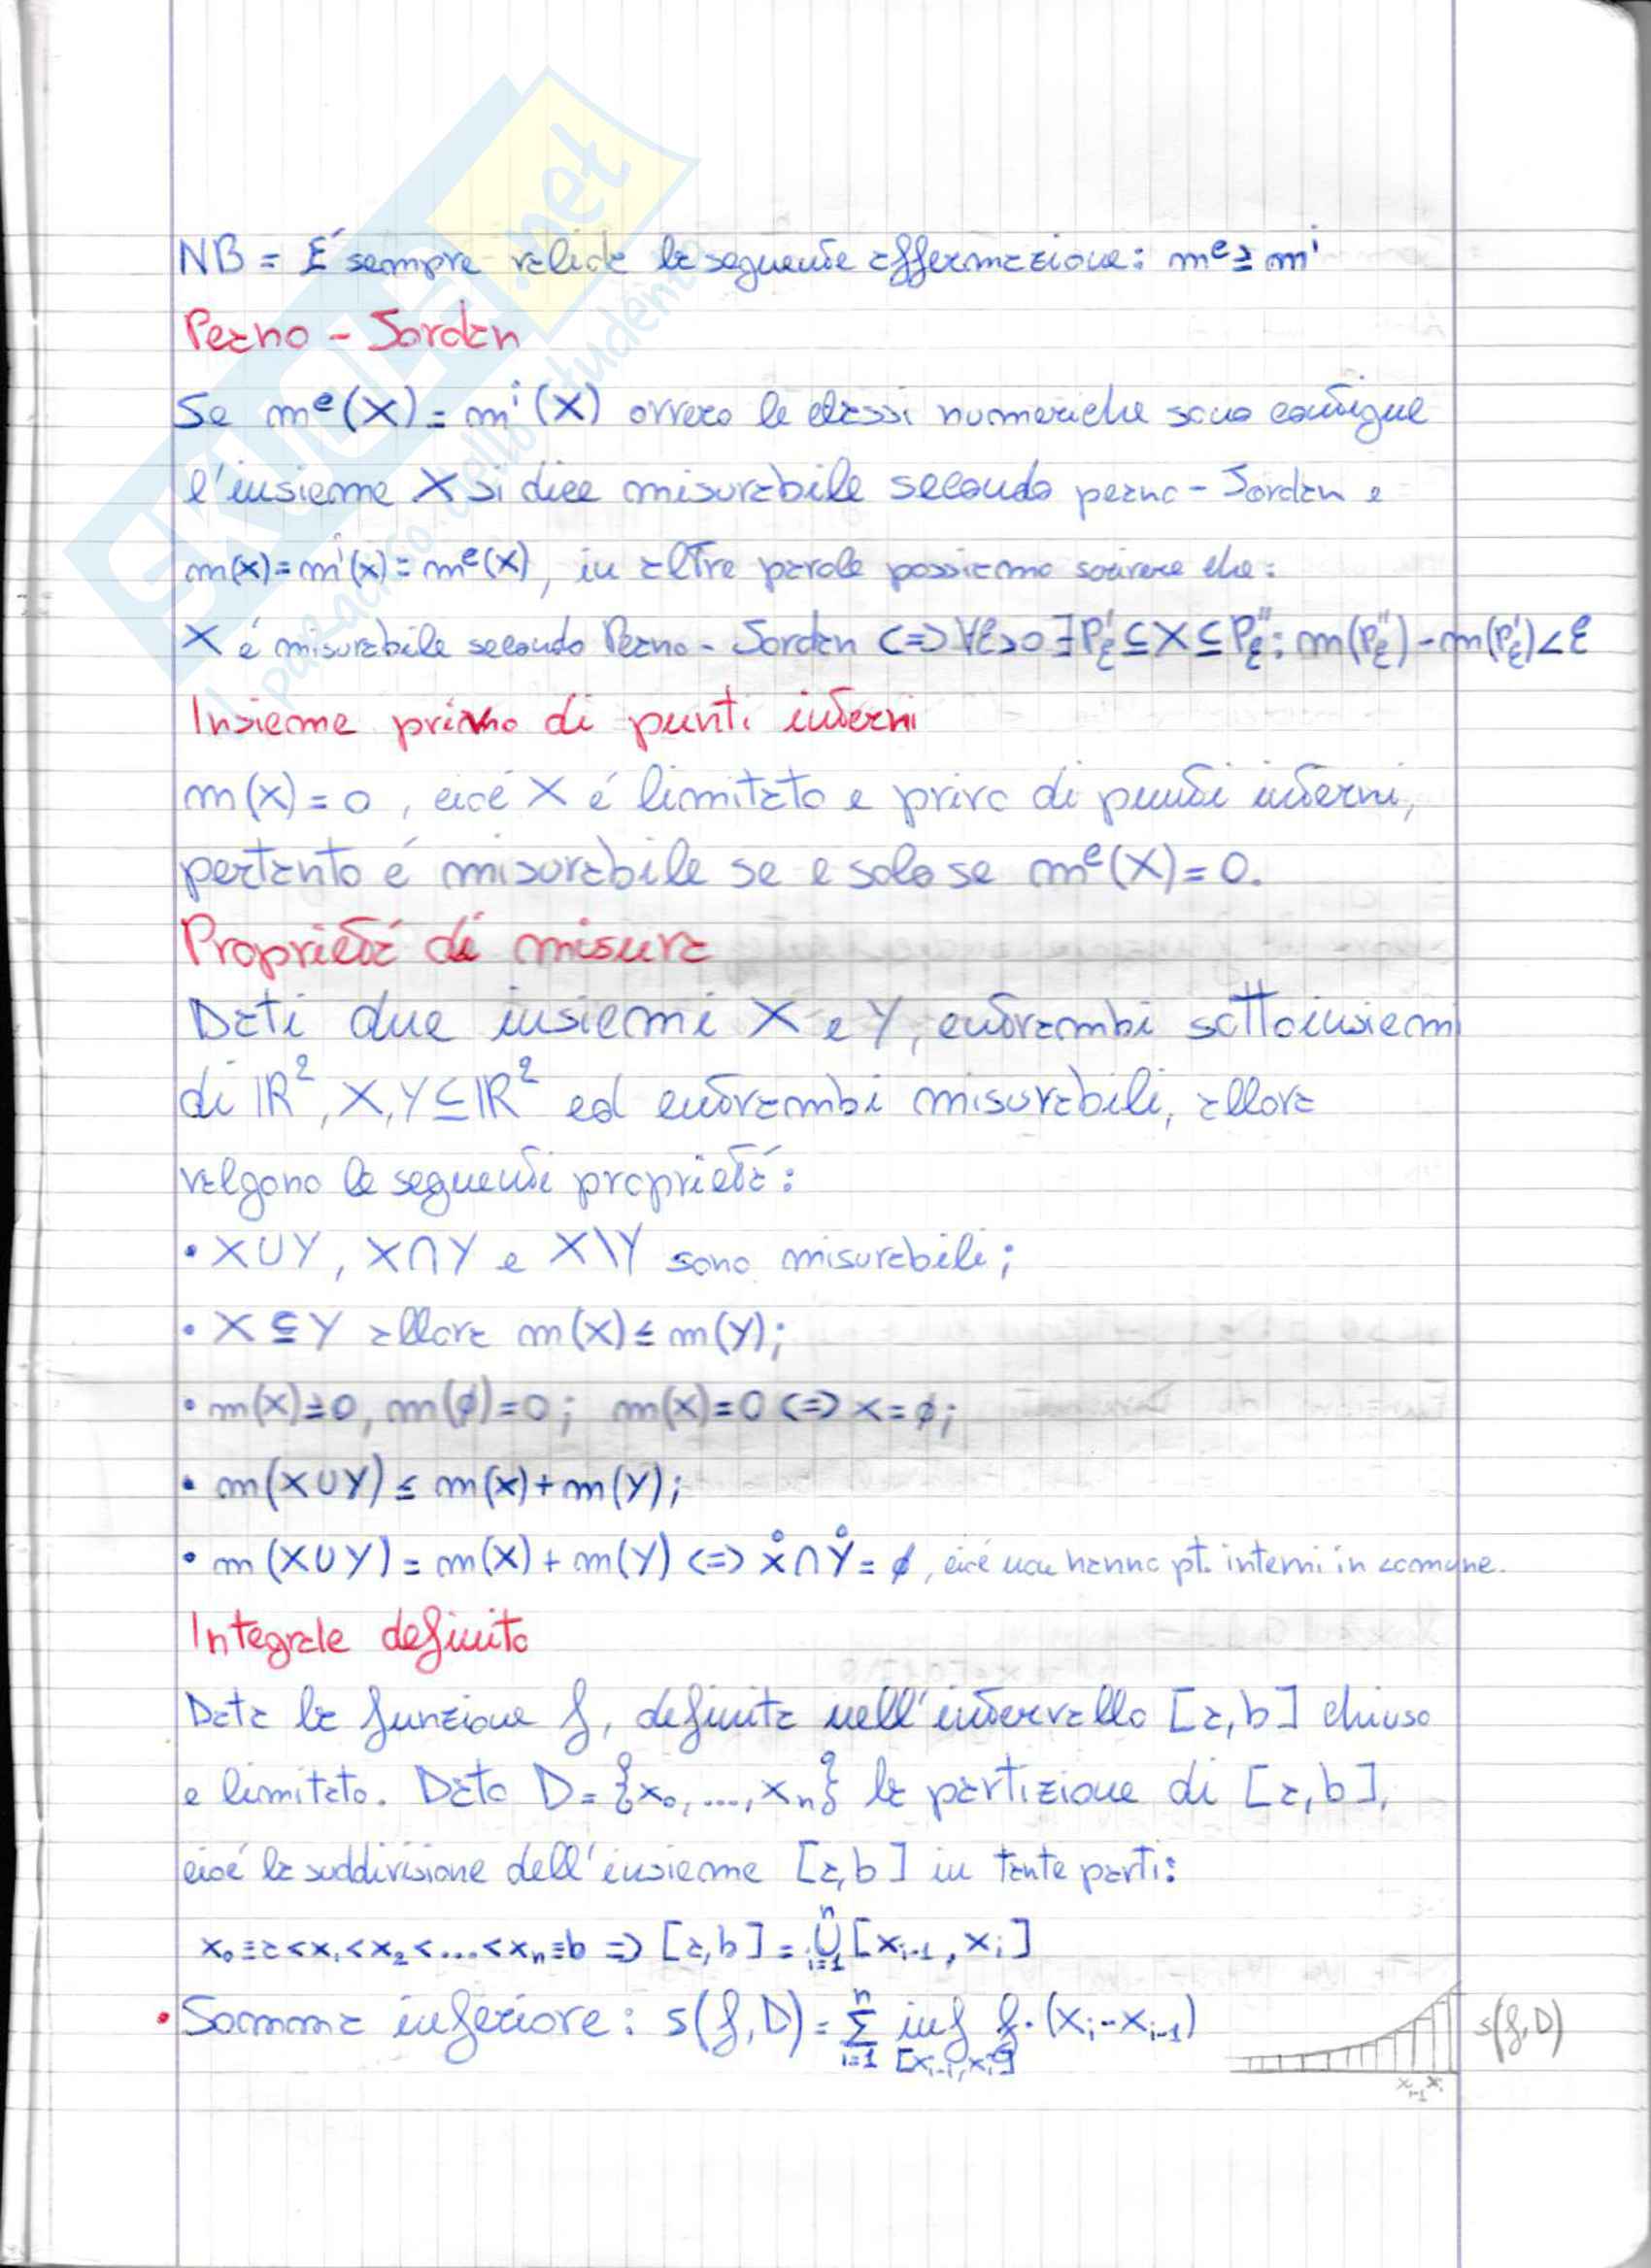 NB = É sempre valida la seguente affermazione: mᵉ ≥ mⁱ
Peano - Jordan
Se mᵉ(X) = mⁱ(X) ovvero le classi numeriche sono contigue
l'insieme X si dice misurabile secondo peano - Jordan e
m(x) = mⁱ(x) = mᵉ(x), in altre parole possiamo scrivere che:
X é misurabile secondo Peano - Jordan <=> ∀ε>0 ∃P'_ε ⊆ X ⊆ P''_ε : m(P''_ε) - m(P'_ε) < ε
Insieme privo di punti interni
m(x) = 0, cioé X é limitato e privo di punti interni,
pertanto é misurabile se e solo se mᵉ(X) = 0.
Proprietá di misura
Dati due insiemi X e Y, entrambi sottoinsiemi
di ℝ², X,Y ⊆ ℝ² ed entrambi misurabili, allora
valgono le seguenti proprietá:
• X∪Y, X∩Y e X\Y sono misurabili;
• X ⊆ Y allora m(x) ≤ m(y);
• m(x) ≥ 0, m(∅) = 0; m(x) = 0 <=> x = ∅;
• m(X∪Y) ≤ m(x) + m(y);
• m(X∪Y) = m(x) + m(y) <=> X̊ ∩ Y̊ = ∅, cioé non hanno pt. interni in comune.
Integrale definito
Data la funzione f, definita nell'intervallo [a,b] chiuso
e limitato. Dato D = {x₀, ..., xₙ} la partizione di [a,b],
cioé la suddivisione dell'insieme [a,b] in tante parti:
x₀ ≡ a < x₁ < x₂ < .... < xₙ ≡ b => [a,b] = ⋃ⁿᵢ₌₁ [xᵢ₋₁, xᵢ]
• Somma inferiore: s(f,D) = Σⁿᵢ₌₁ inf_[xᵢ₋₁,xᵢ] f · (xᵢ - xᵢ₋₁)
s(f,D)
xᵢ₋₁ xᵢ
SKUOLA.net
Il paradiso dello studente